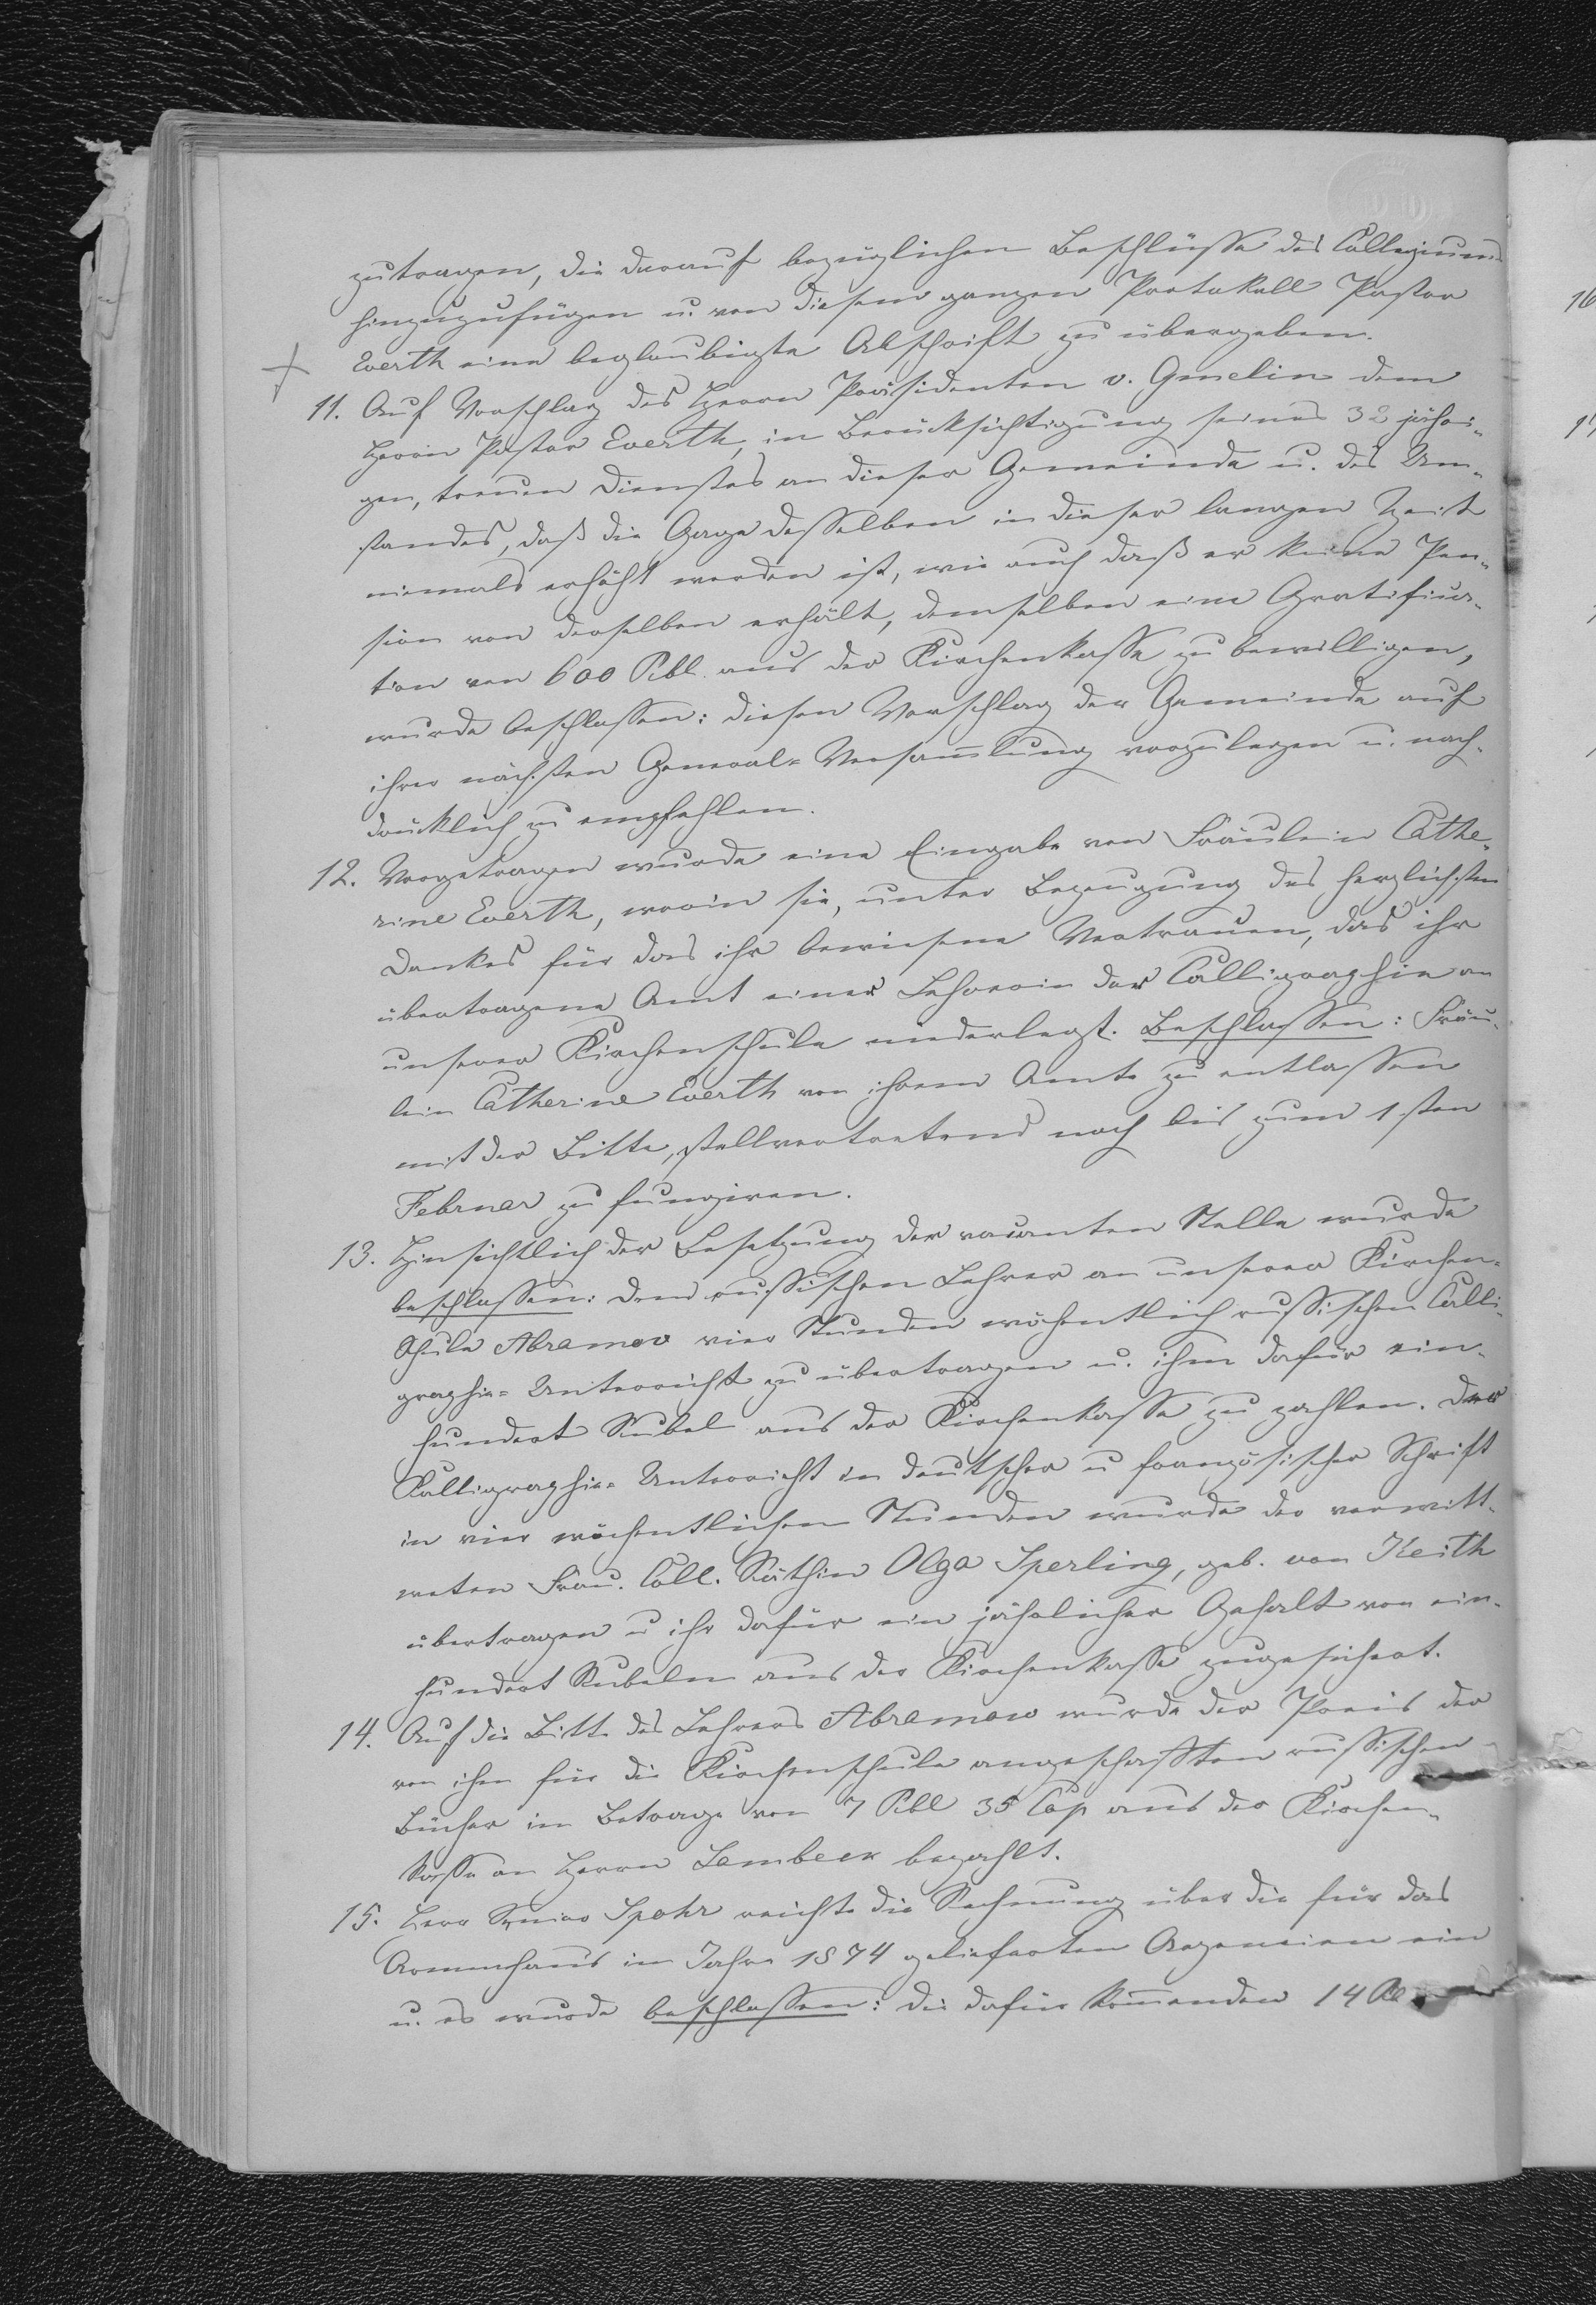 zutragen, die darauf bezüglichen Beschlüsse des Collegiums
hinzuzufügen u. von diesem ganzen Protokoll Pastor
Everth eine beglaubigte Abschrift zu übergeben.
11. Auf Vorschlag des Herrn Präsidenten v. Gmelin dem
Herrn Pastor Everth, in Berücksichtigung seines 32 jähri-
gen, treuen Dienstes an dieser Gemeinde u. des Um-
standes, daß die Gage desselben in dieser langen Zeit
niemals erhöht worden ist, wie auch daß er keine Pen-
sion von derselben erhält, demselben eine Gratifica-
tion von 600 Rbl. aus der Kirchenkasse zu bewilligen,
wurde beschlossen: diesen Vorschlag der Gemeinde auf
ihrer nächsten General-Versammlung vorzulegen u. nach-
drücklich zu empfehlen.
12. Vorgetragen wurde eine Eingabe von Fräulein Cathe-
rine Everth, worin sie, unter Bezeugung des herzlichsten
Dankes für das ihr bewiesene Vertrauen, das ihr
übertragene Amt einer Lehrerin der Calligraphie an
unserer Kirchenschule niederlegt. Beschlossen: Fräu-
lein Catherine Everth von ihrem Amte zu entlassen
mit der Bitte, stellvertretend noch bis zum 1sten
Februar zu fungiren.
13. Hinsichtlich der Besetzung der vacanten Stelle wurde
beschlossen: dem russischen Lehrer an unserer Kirchen-
Schule Abramow vier Stunden wöchentlich russischen Calli-
graphie-Unterricht zu übertragen u. ihm dafür ein-
hundert Rubel aus der Kirchenkasse zu zahlen. Der
Kalligraphie-Unterricht in deutscher u französischer Schrift
in vier wöchentlichen Stunden wurde der verwitt-
weten Frau. Coll. Räthin Olga Sperling, geb. von Keith
übertragen u ihr dafür ein jährlicher Gehalt von ein-
hundert Rubeln aus der Kirchenkasse zugesichert.
14. Auf die Bitte des Lehrers Abramow wurde der Preis der
von ihm für die Kirchenschule angeschafften russischen
Bücher im Betrage von 7 Rbl 35 Cop aus der Kirchen-
kasse an Herrn Lembeck bezahlt.
15. Herr Senior Spohr reichte die Rechnung über die für das
Armenhaus im Jahre 1874 gelieferten Arzeneien ein
u. es wurde beschlossen: die dafür kommenden 14 Rbl